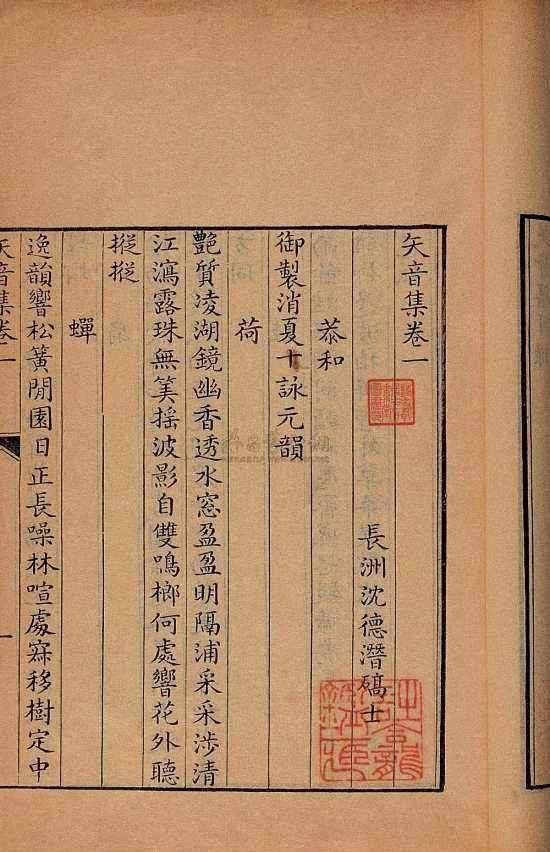 矢音集卷一
長洲沈德潛碻士
恭和
御製消夏十詠元韻
荷
艷質凌湖鏡幽香透水窓盈盈明隔浦采采涉清
江瀉露珠無筭揺波影自雙鳴榔何處響花外聽
摐摐
蟬
逸韻響松簧閒園日正長噪林喧處寂移樹定中
矢音集卷一
一